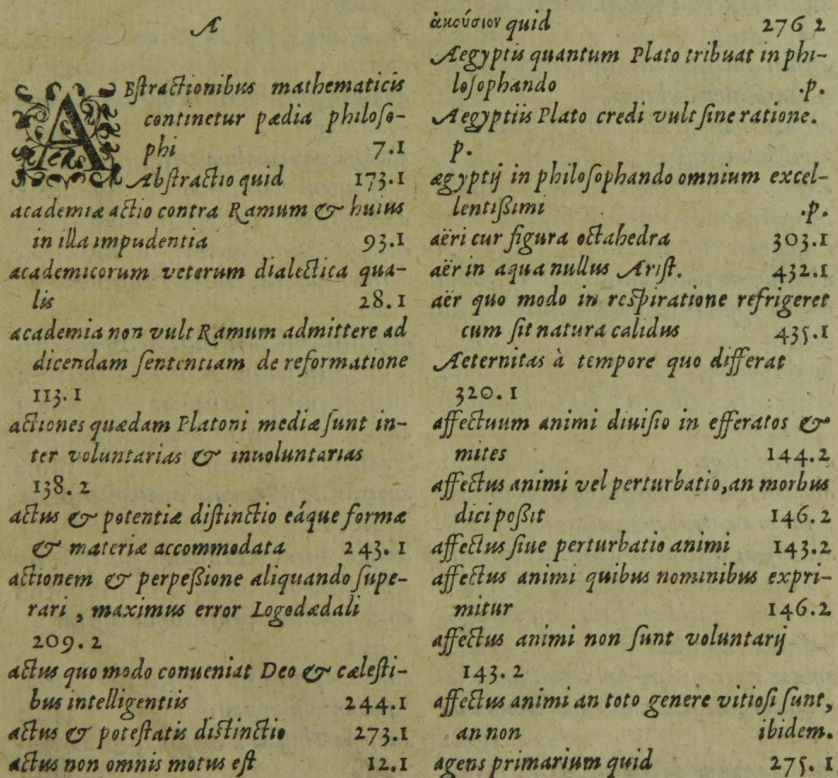 A
ABstractionibus mathematicis
continetur pædia philoso-
phi 7.1
Abstractio quid 173.1
academiæ actio contra Ramum & huius
in illa impudentia 93.1
academicorum veterum dialectica qua-
lis 28.1
academia non vult Ramum admittere ad
dicendam sententiam de reformatione
113.1
actiones quædam Platoni mediæ sunt in-
ter voluntarias & inuoluntarias
138.2
actus & potentiæ distinctio eáque formæ
& materiæ accommodata 243.1
actionem & perpeßione aliquando supe-
rari, maximus error Logodædali
209.2
actus quo modo conueniat Deo & cælesti-
bus intelligentiis 244.1
actus & potestatis distinctio 273.1
actus non omnis motus est 12.1
ἀκούσιον quid 276 2
Ægyptis quantum Plato tribuat in phi-
losophando .p.
Ægyptiis Plato credi vult sine ratione.
p.
ægyptij in philosophando omnium excel-
lentißimi .p.
aëri cur figura octahedra 303.1
aër in aqua nullus Arist. 432.1
aër quo modo in respiratione refrigeret
cum sit natura calidus 435.1
Æternitas à tempore quo differat
320.1
affectuum animi diuisio in efferatos &
mites 144.2
affectus animi vel perturbatio, an morbus
dici poßit 146.2
affectus siue perturbatio animi 143.2
affectus animi quibus nominibus expri-
mitur 146.2
affectus animi non sunt voluntarij
143.2
affectus animi an toto genere vitiosi sunt,
an non ibidem.
agens primarium quid 275.1